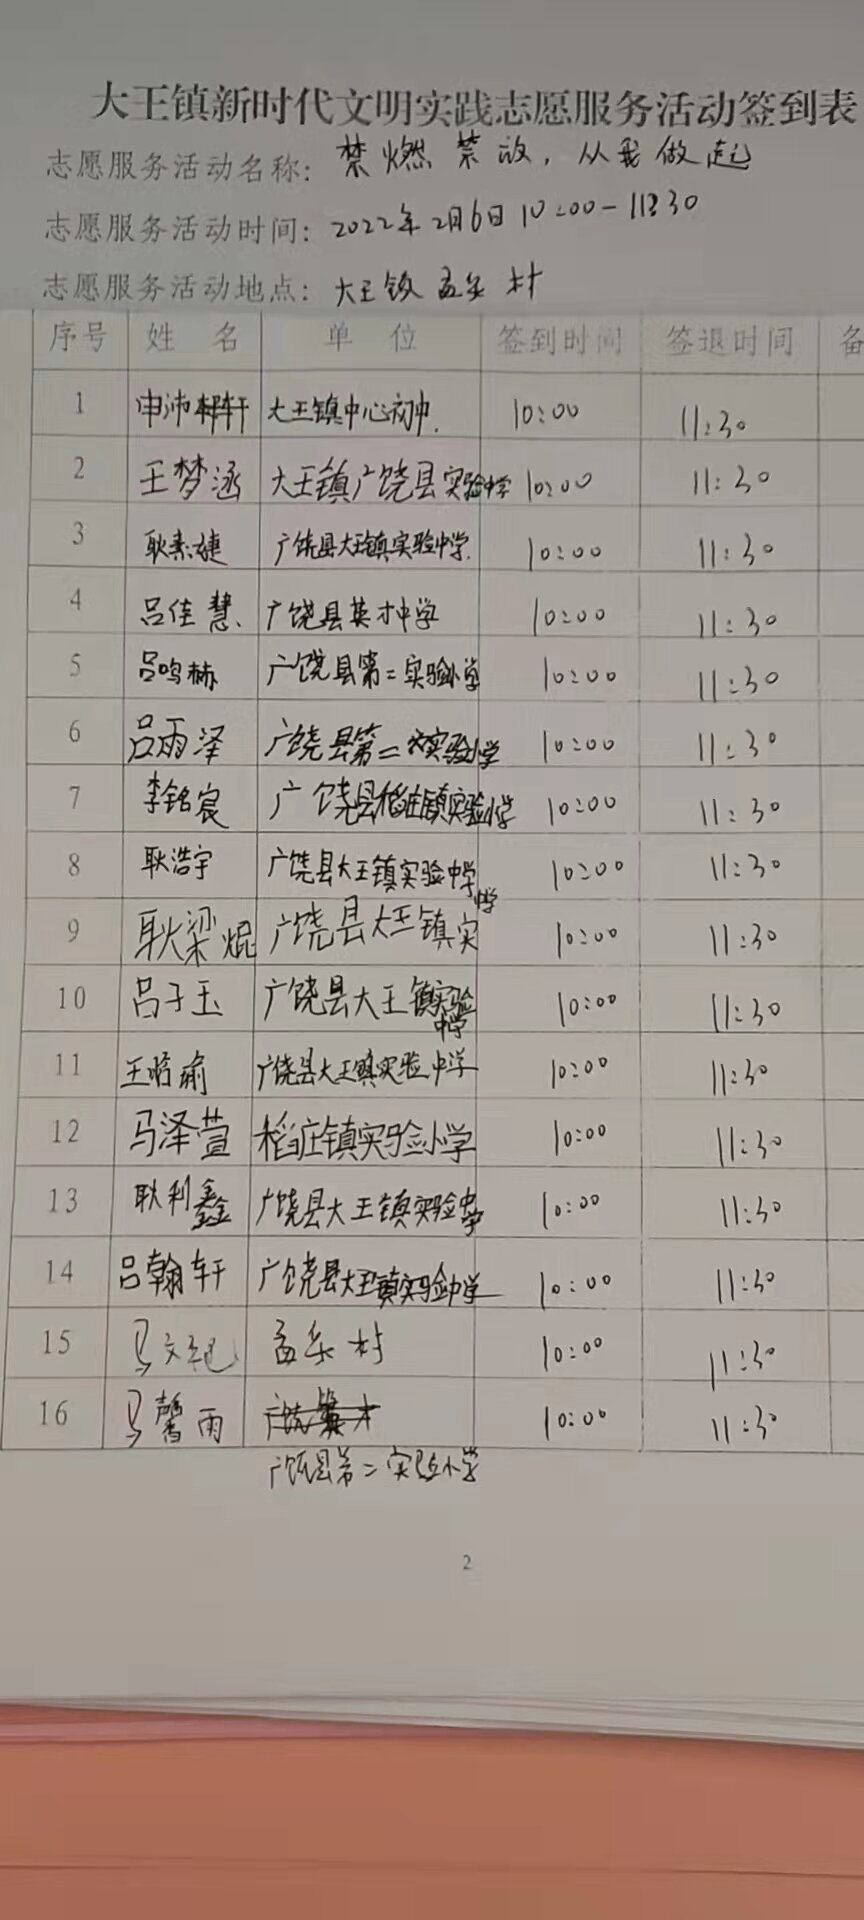 大王镇新时代文明实践志愿服务活动签到表
志愿服务活动名称：禁燃禁放，从我做起
志愿服务活动时间：2022年2月6日 10:00-11:30
志愿服务活动地点：大王镇孟乐村
序号 姓名 单位 签到时间 签退时间 备
1 申沛轩 大王镇中心初中. 10:00 11:30
2 王梦涵 大王镇广饶县实验中学 10:00 11:30
3 耿素婕 广饶县大王镇实验中学. 10:00 11:30
4 吕佳慧 广饶县英才中学 10:00 11:30
5 吕鸣赫 广饶县第二实验小学 10:00 11:30
6 吕雨泽 广饶县第二实验小学 10:00 11:30
7 李铭宸 广饶县稻庄镇实验小学 10:00 11:30
8 耿浩宇 广饶县大王镇实验中学 10:00 11:30
9 耿梁焜 广饶县大王镇实 中学 10:00 11:30
10 吕子玉 广饶县大王镇实验中学 10:00 11:30
11 王皓瑜 广饶县大王镇实验中学 10:00 11:30
12 马泽萱 稻庄镇实验小学 10:00 11:30
13 耿利鑫 广饶县大王镇实验中学 10:00 11:30
14 吕翰轩 广饶县大王镇实验中学 10:00 11:30
15 马文 孟乐村 10:00 11:30
16 马馨雨 10:00 11:30
广饶县第二实验小学
2